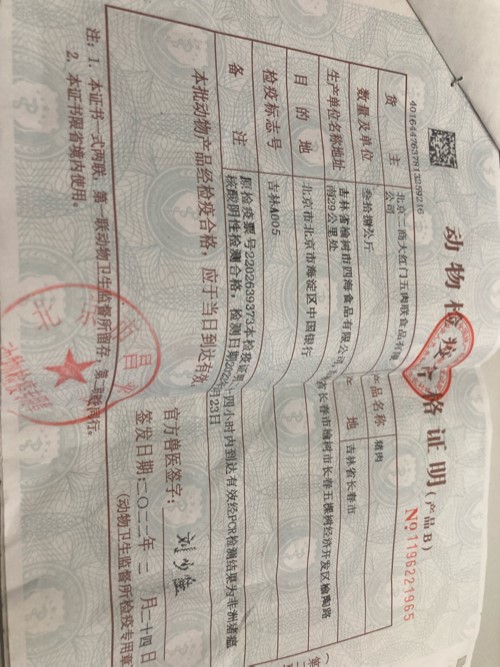 动物检疫合格证明(产品B)
No.1196221965
4016447637813259216
货主 北京二商大红门五肉联食品有限公司 产品名称 猪肉
数量及单位 叁拾捌公斤 产地 吉林省长春市
生产单位名称地址 吉林省榆树市四海食品有限公司 省长春市榆树市长春五棵树经济开发区榆陶路
南29公里处
目的地 北京市北京市海淀区中国银行
检疫标志号 吉林A005
备注 原检疫票号2202639373本检疫证明 四小时内到达有效经PCR检测结果为非洲猪瘟
核酸阴性检测合格,检测日期202 月23日
本批动物产品经检疫合格,应于当日到达有效
官方兽医签字:
签发日期:二〇二二年二月二十四日
(动物卫生监督所检疫专用章
注:1、本证书一式两联,第一联动物卫生监督所留存,第二联随货同行。
2、本证书限省境内使用。